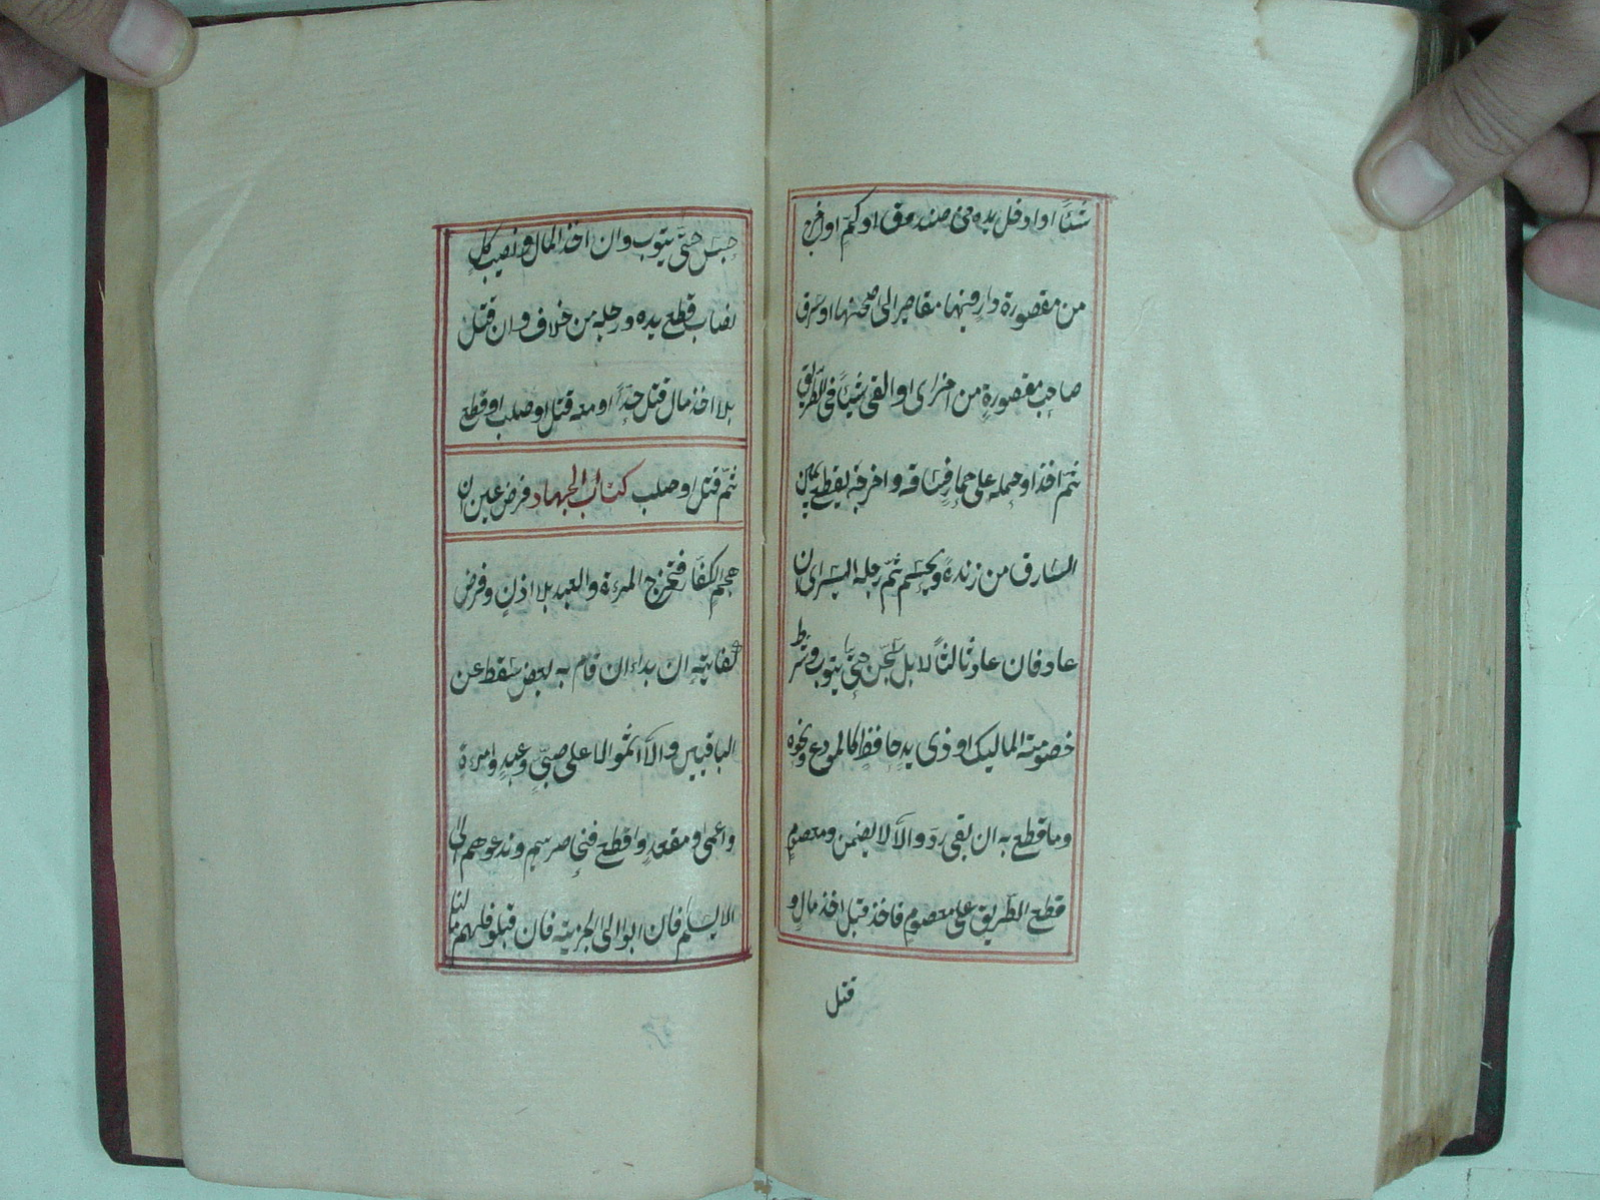 شيئا او ادخل يده في صندوق او كم او اخرج
من مقصورة دار فيها مقاصر الى صحنها او سرق
صاحب مقصورة من اخرى او القى شيئا في الطريق
ثم اخذ او حمله على حمار فساقه واخرجه يقطع يمين
السارق من زنده ويحسم ثم رجله اليسرى ان
عاد فان عاد ثالثا لا بل سجن حتى يتوب وشرط
خصومة المالك او ذي يد حافظ كالمودع ونحوه
وما قطع به ان بقي رد والا لا يضمن ومعصوم
قطع الطريق على معصوم فاخذ قبل اخذ مال و
قتل
حبس حتى يتوب وان اخذ المال ونصيب كل
نصاب قطع يده ورجله من خلاف وان قتل
بلا اخذ مال قتل حدا او معه قتل او صلب او قطع
ثم قتل او صلب كتاب الجهاد فرض عين ان
هجم الكفار فتخرج المرءة والعبد بلا اذن وفرض
كفاية ان بداء ان قام به بعض سقط عن
الباقين والا اثموا لا على صبي وعبد وامرءة
واعمى ومقعد واقطع فنحاصرهم وندعوهم الى
الاسلام فان ابوا الى الجزية فان قبلوا فلهم ما لنا